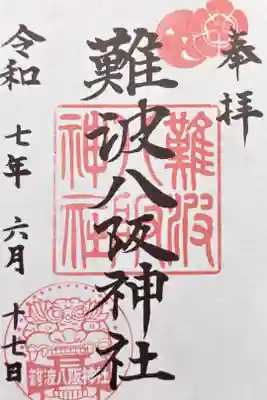 奉拝
難波八阪神社
難波
八阪
神社
令和七年六月十七日
難波八阪神社